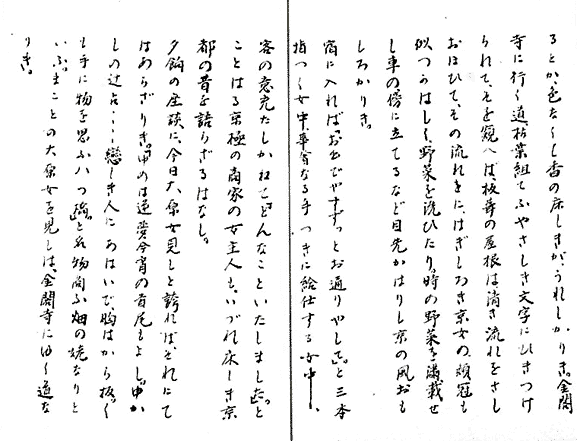 るとか、色なくし香の床しきがうれしかりき。金閣
寺に行く道、枝葉組てふやさしき文字にひきつけ
られて、そを窺へば、板葺の屋根は清き流れをさし
おほひて、その流れをに、はぎしろき京女の、頰冠も
似つかはしく、野菜を洗ひたり。時の野菜を満載せ
し車の傍に立てるなど目先かはりし京の風おも
しろかりき。
宿に入れば「おいでやすす」とお通りやして」と三本
指つく女中、華奢なる手つきに給仕する女中、
客の意充たしかねて「どんなこといたしました」と
ことはる京極の商家の女主人も、いづれ床しき京
都の昔を語らざるはなし。
夕餉の座談に、今日大原女見しと誇ればそれにて
はあらざりき。「ゆめは逆夢今宵の首尾もよし、中か
しの辻占……戀しき人にあはいで胸はから板、く
も手に物を思ふ八つ橋」と名物商ふ畑の姥なりと
いふ。まことの大原女を見しは、金閣寺にゆく道な
りき。